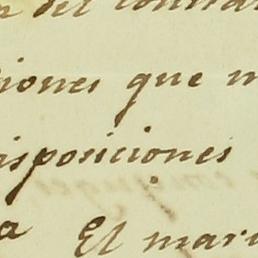 del
iones que
isposiciones
a El mari